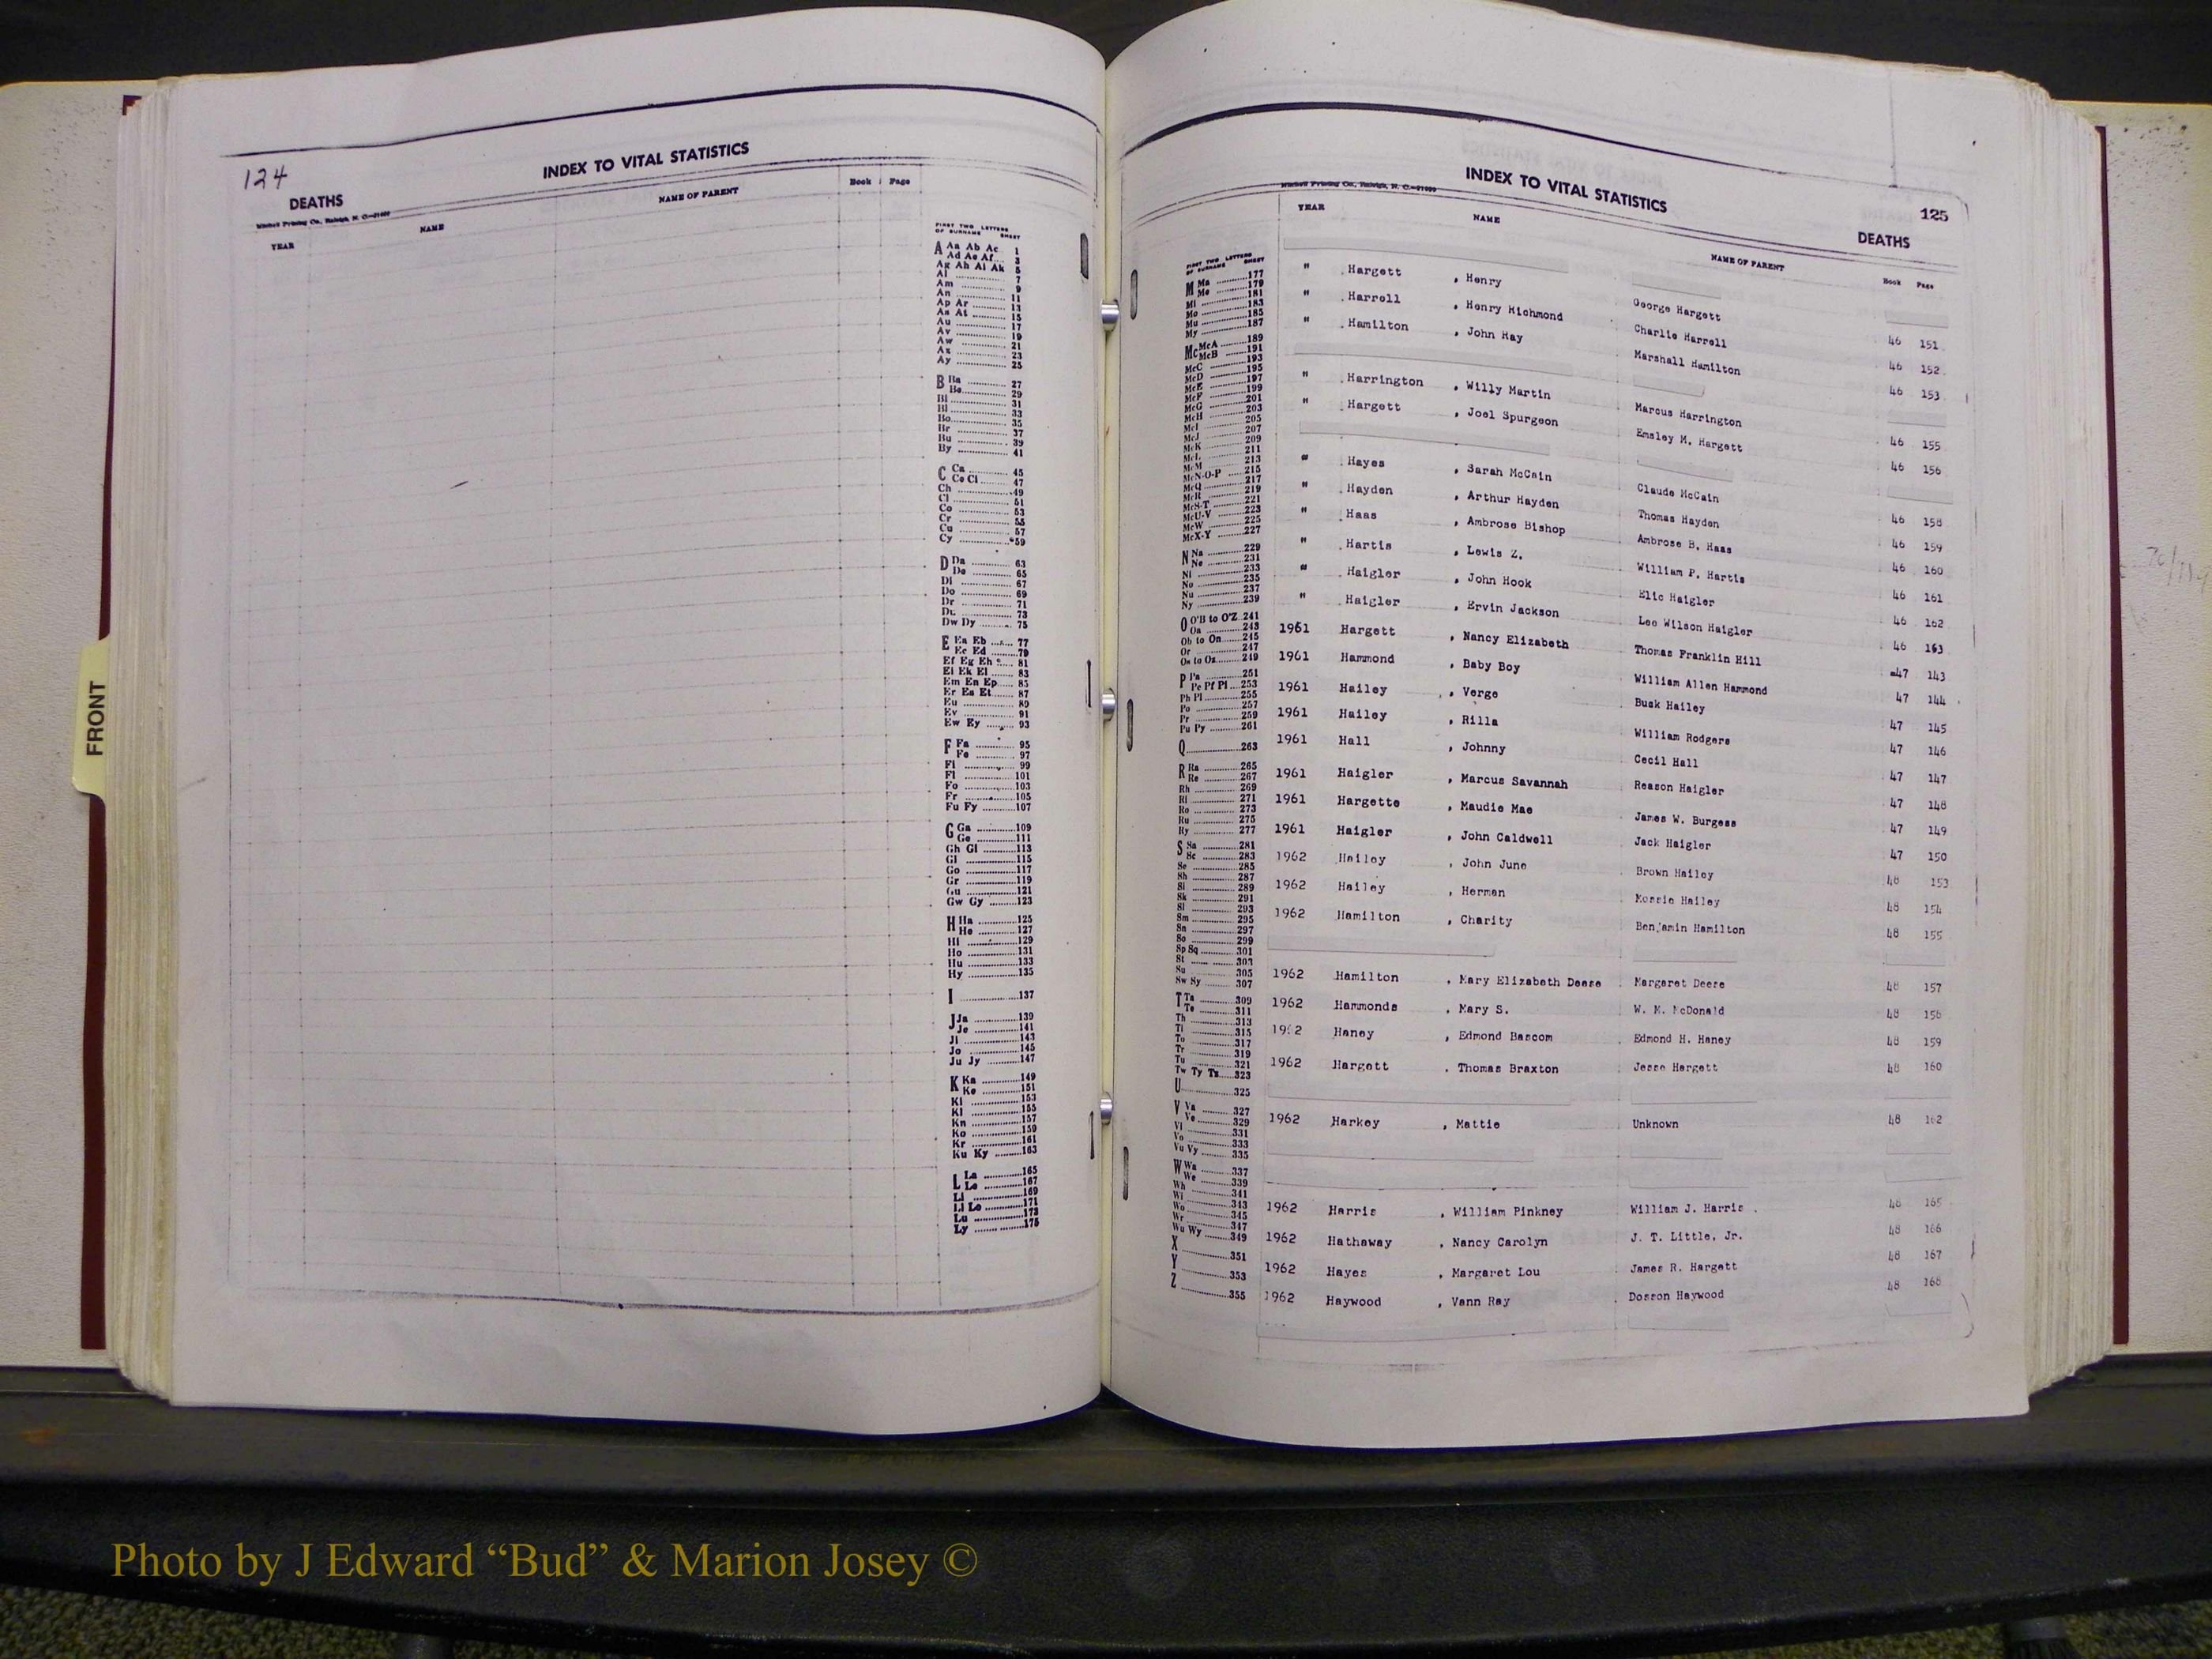 124
INDEX TO VITAL STATISTICS
DEATHS
Mitchell Printing Co., Raleigh, N. C.
YEAR NAME NAME OF PARENT Book Page
FIRST TWO LETTERS
OF SURNAME SHEET
A Aa Ab Ac 1
Ad Ae Af 3
Ag Ah Ai Ak 5
Al 7
Am 9
An 11
Ap Ar 13
As At 15
Au 17
Av 19
Aw 21
Ax 23
Ay 25
B Ba 27
Be 29
Bi 31
Bl 33
Bo 35
Br 37
Bu 39
By 41
C Ca 45
Ce Ci 47
Ch 49
Cl 51
Co 53
Cr 55
Cu 57
Cy 59
D Da 63
De 65
Di 67
Do 69
Dr 71
Du 73
Dw Dy 75
E Ea Eb 77
Ec Ed 79
Ef Eg Eh 81
Ei Ek El 83
Em En Ep 85
Er Es Et 87
Eu 89
Ev 91
Ew Ey 93
F Fa 95
Fe 97
Fi 99
Fl 101
Fo 103
Fr 105
Fu Fy 107
G Ga 109
Ge 111
Gh Gi 113
Gl 115
Go 117
Gr 119
Gu 121
Gw Gy 123
H Ha 125
He 127
Hi 129
Ho 131
Hu 133
Hy 135
I 137
J Ja 139
Je 141
Ji 143
Jo 145
Ju Jy 147
K Ka 149
Ke 151
Ki 153
Kl 155
Kn 157
Ko 159
Kr 161
Ku Ky 163
L La 165
Le 167
Li 169
Ll Lo 171
Lu 173
Ly 175
FRONT
INDEX TO VITAL STATISTICS
125
DEATHS
Mitchell Printing Co., Raleigh, N. C.
YEAR NAME NAME OF PARENT Book Page
FIRST TWO LETTERS
OF SURNAME SHEET
M Ma 177
Me 179
Mi 181
Mo 183
Mu 185
My 187
Mc McA 189
McB 191
McC 193
McD 195
McE 197
McF 199
McG 201
McH 203
McI 205
McJ 207
McK 209
McL 211
McM 213
McN-O-P 215
McQ 217
McR 219
McS-T 221
McU-V 223
McW 225
McX-Y 227
N Na 229
Ne 231
Ni 233
No 235
Nu 237
Ny 239
O O'B to O'Z 241
Oa 243
Ob to On 245
Or 247
Os to Oz 249
P Pa 251
Pe Pf Pi 253
Ph Pl 255
Po 257
Pr 259
Pu Py 261
Q 263
R Ra 265
Re 267
Rh 269
Ri 271
Ro 273
Ru 275
Ry 277
S Sa 281
Sc 283
Se 285
Sh 287
Si 289
Sk 291
Sl 293
Sm 295
Sn 297
So 299
Sp Sq 301
St 303
Su 305
Sw Sy 307
T Ta 309
Te 311
Th 313
Ti 315
To 317
Tr 319
Tu 321
Tw Ty Tz 323
U 325
V Va 327
Ve 329
Vi 331
Vo 333
Vu Vy 335
W Wa 337
We 339
Wh 341
Wi 343
Wo 345
Wr 347
Wu Wy 349
X 351
Y 353
Z 355
" Hargett , Henry George Hargett 46 151
" Harrell , Henry Richmond Charlie Harrell 46 152
" Hamilton , John Ray Marshall Hamilton 46 153
" Harrington , Willy Martin Marcus Harrington 46 155
" Hargett , Joel Spurgeon Emsley M. Hargett 46 156
" Hayes , Sarah McCain Claude McCain 46 158
" Hayden , Arthur Hayden Thomas Hayden 46 159
" Haas , Ambrose Bishop Ambrose B. Haas 46 160
" Hartis , Lewis Z. William P. Hartis 46 161
" Haigler , John Hook Elic Haigler 46 162
" Haigler , Ervin Jackson Lee Wilson Haigler 46 163
1961 Hargett , Nancy Elizabeth Thomas Franklin Hill 47 143
1961 Hammond , Baby Boy William Allen Hammond 47 144
1961 Hailey , Verge Busk Hailey 47 145
1961 Hailey , Rilla William Rodgers 47 146
1961 Hall , Johnny Cecil Hall 47 147
1961 Haigler , Marcus Savannah Reason Haigler 47 148
1961 Hargette , Maudie Mae James W. Burgess 47 149
1961 Haigler , John Caldwell Jack Haigler 47 150
1962 Hailey , John June Brown Hailey 48 153
1962 Hailey , Herman Mossie Hailey 48 154
1962 Hamilton , Charity Benjamin Hamilton 48 155
1962 Hamilton , Mary Elizabeth Deese Margaret Deese 48 157
1962 Hammonds , Mary S. W. M. McDonald 48 158
1962 Haney , Edmond Bascom Edmond H. Haney 48 159
1962 Hargett , Thomas Braxton Jesse Hargett 48 160
1962 Harkey , Mattie Unknown 48 162
1962 Harris , William Pinkney William J. Harris 48 165
1962 Hathaway , Nancy Carolyn J. T. Little, Jr. 48 166
1962 Hayes , Margaret Lou James R. Hargett 48 167
1962 Haywood , Vann Ray Dosson Haywood 48 168
Photo by J Edward “Bud” & Marion Josey ©